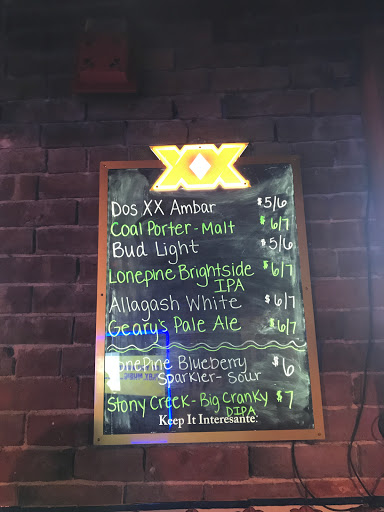 XX
Dos XX Ambar $5/6
Coal Porter-Malt $6/7
Bud Light $5/6
Lonepine Brightside $6/7
IPA
Allagash White $6/7
Geary's Pale Ale $6/7
Lonepine Blueberry $6
Sparkler-Sour
Stony Creek-Big Cranky $7
DIPA
Keep It Interesante.